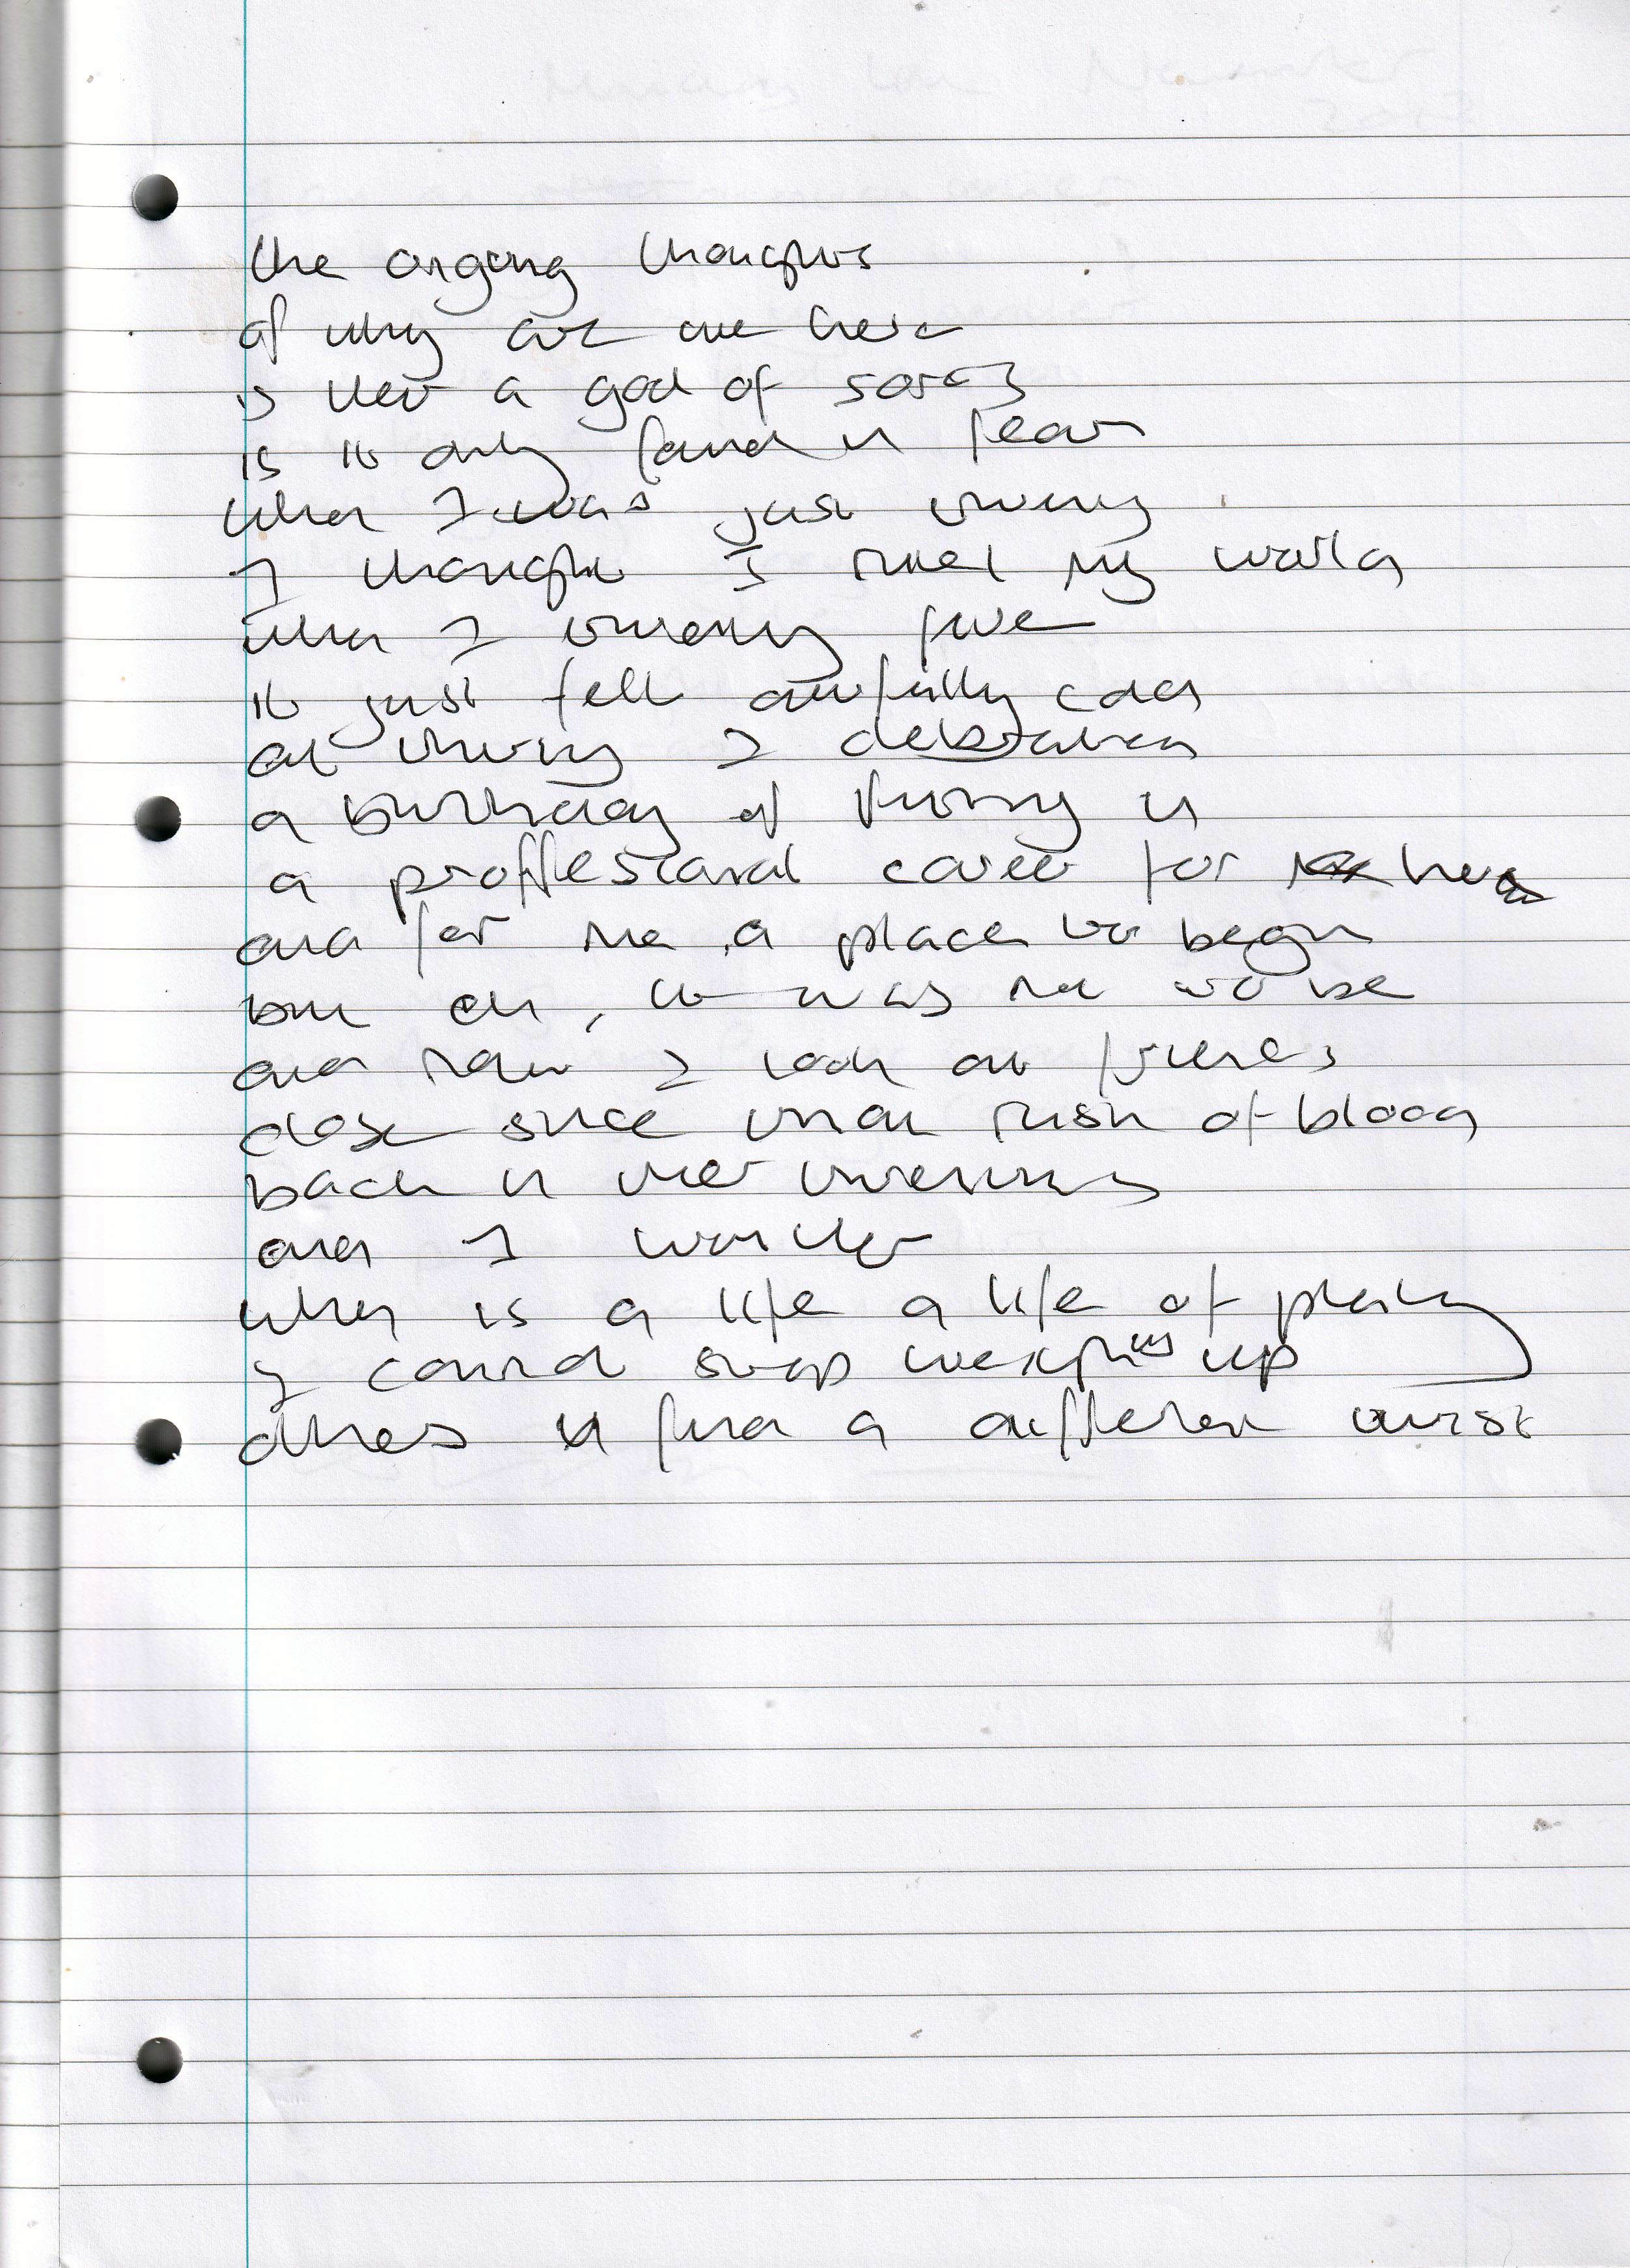 the ongoing thoughts
of why are we here
is there a god of sorts
is it only found in fear
when I was just twenty
I thought I ruled my world
when I twenty five
it just felt awfully cold
at thirty I celebrated
a birthday of funny in
a proffesional career for her
and for me a place to begin
but oh, it was not to be
and now I look at friends
close since that rush of blood
back in their twenties
and I wonder
when is a life a life of plenty
I could stop weighing up
others in find a different twist